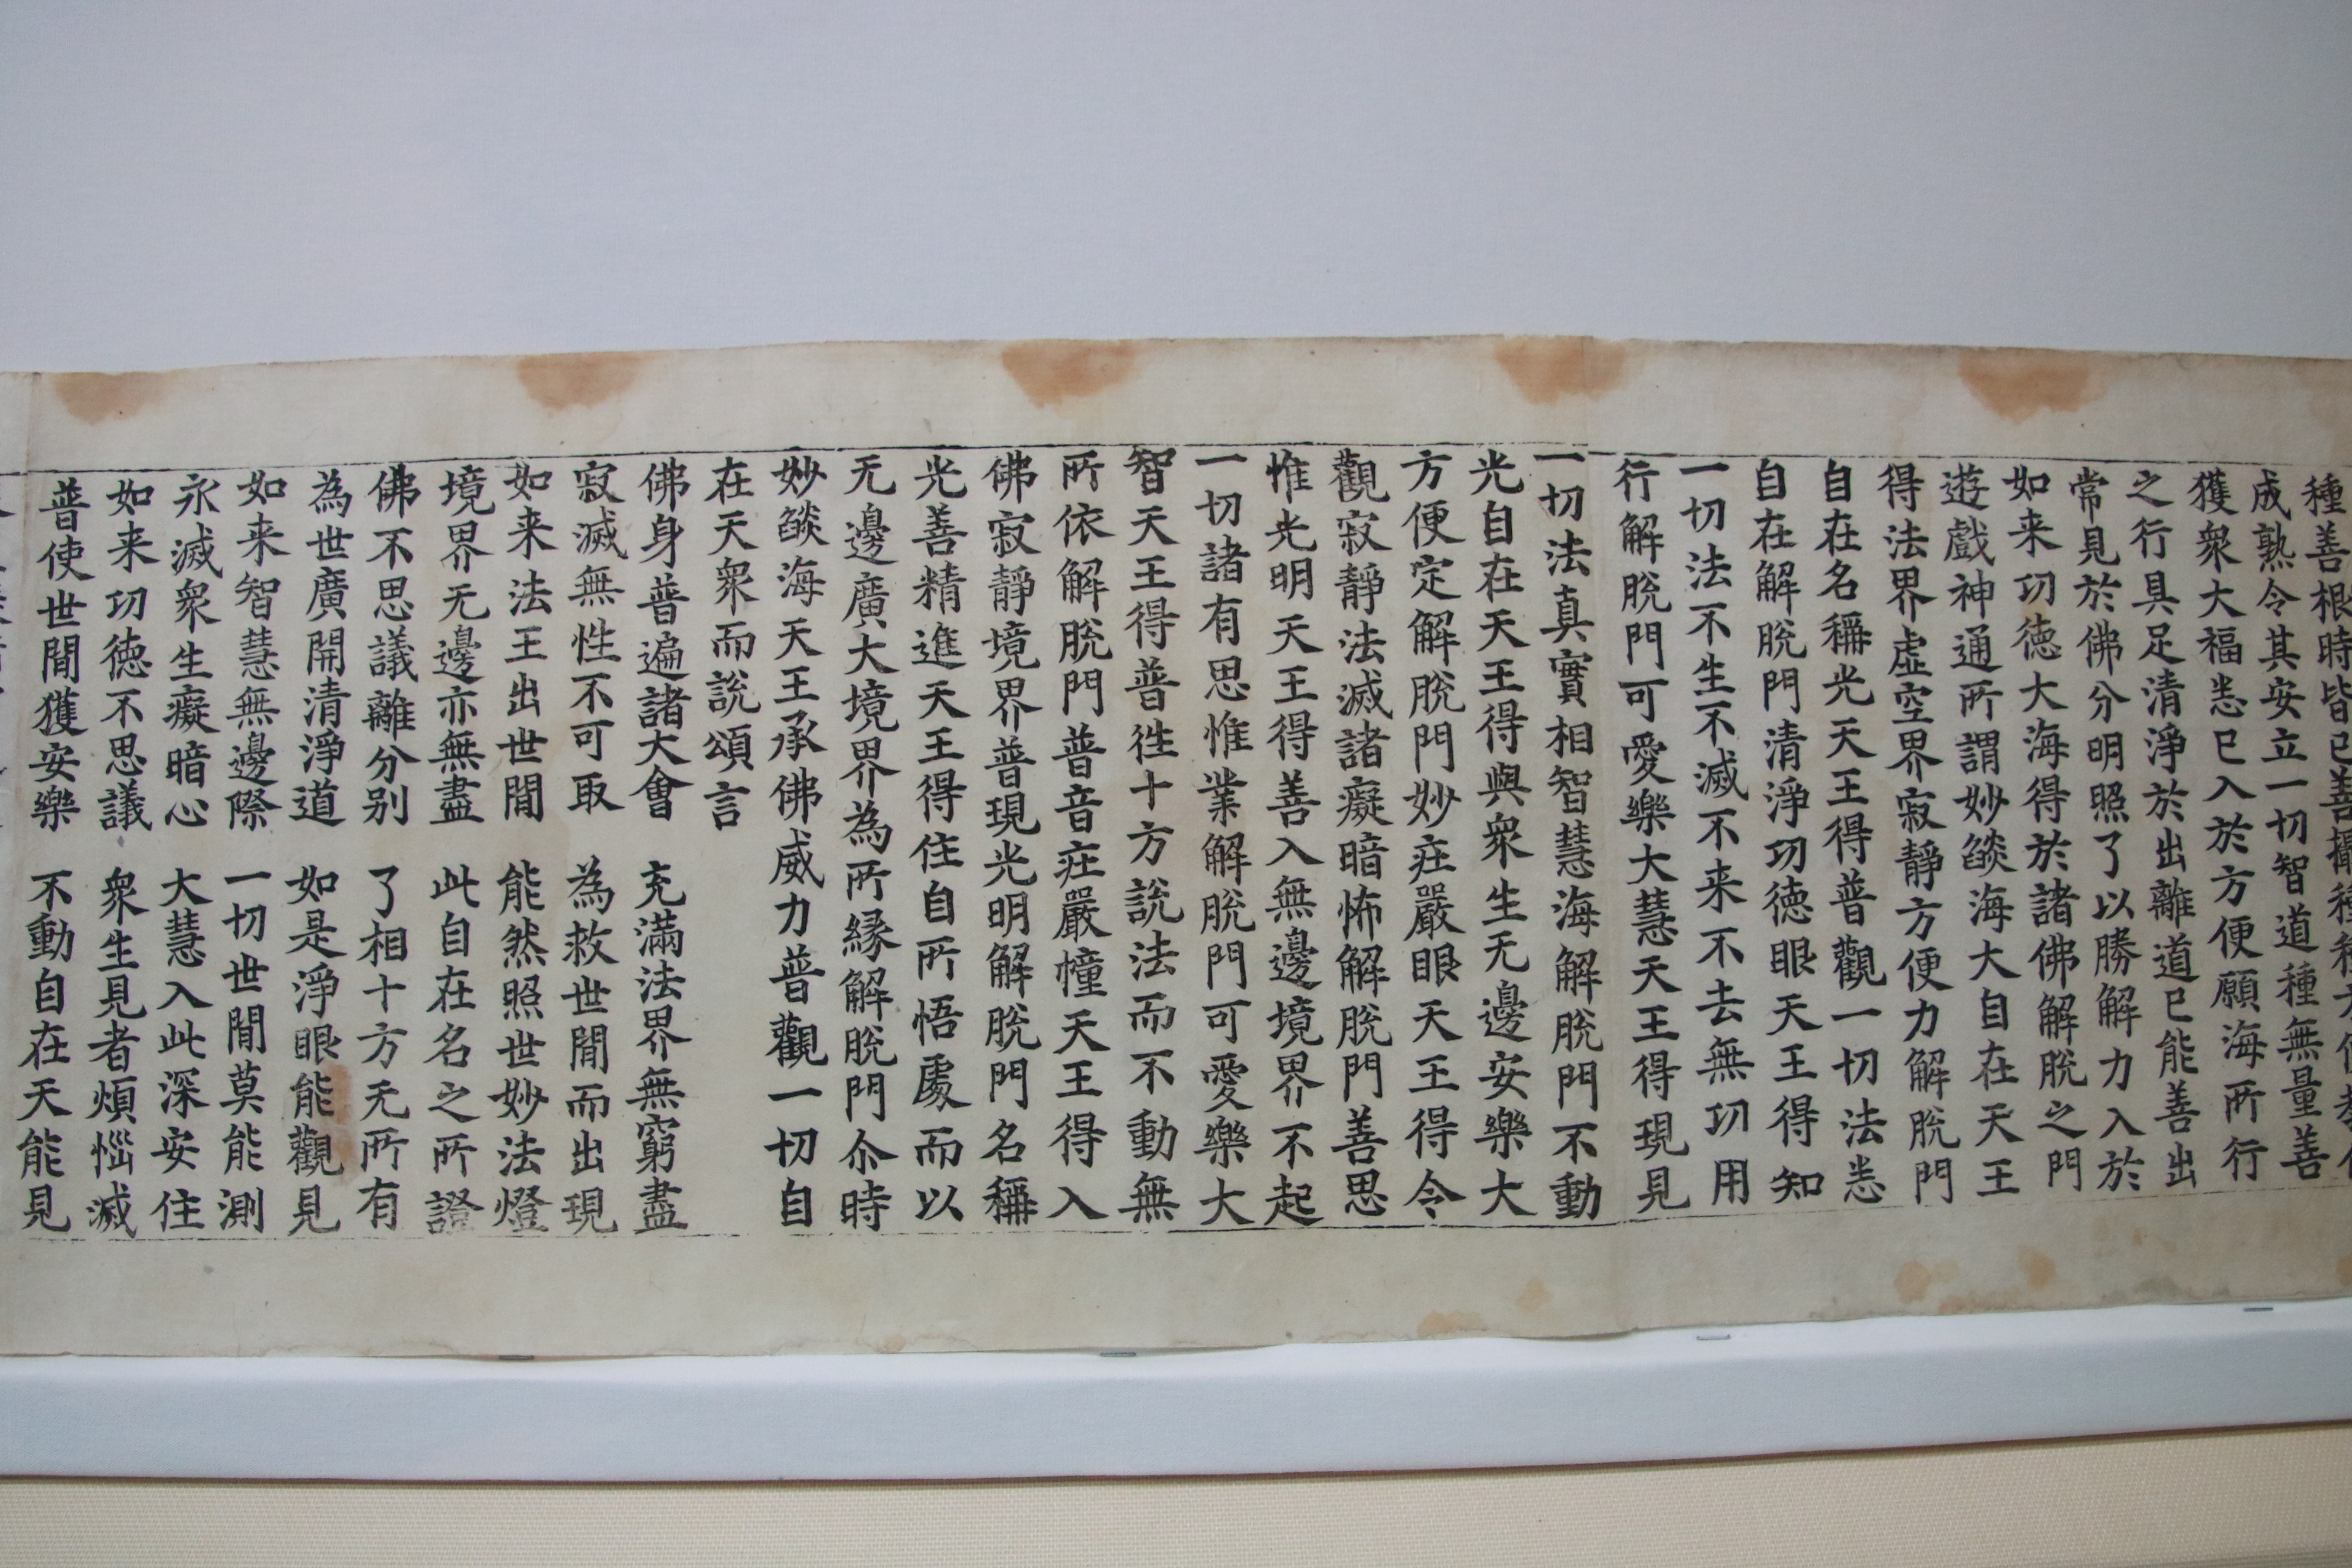 種善根時皆已善攝種種方便教化
成熟令其安立一切智道種無量善
獲衆大福悉已入於方便願海所行
之行具足清淨於出離道已能善出
常見於佛分明照了以勝解力入於
如来功徳大海得於諸佛解脫之門
遊戲神通所謂妙燄海大自在天王
得法界虛空界寂靜方便力解脫門
自在名稱光天王得普觀一切法悉
自在解脫門清淨功徳眼天王得知
一切法不生不滅不来不去無功用
行解脫門可愛樂大慧天王得現見
一切法真實相智慧海解脫門不動
光自在天王得與衆生无邊安樂大
方便定解脫門妙庄嚴眼天王得令
觀寂靜法滅諸癡暗怖解脫門善思
惟光明天王得善入無邊境界不起
一切諸有思惟業解脫門可愛樂大
智天王得普徃十方說法而不動無
所依解脫門普音庄嚴幢天王得入
佛寂靜境界普現光明解脫門名稱
光善精進天王得住自所悟處而以
无邊廣大境界為所縁解脫門尒時
妙燄海天王承佛威力普觀一切自
在天衆而說頌言
佛身普遍諸大會　充滿法界無窮盡
寂滅無性不可取　為救世間而出現
如来法王出世間　能然照世妙法燈
境界无邊亦無盡　此自在名之所證
佛不思議離分別　了相十方无所有
為世廣開清淨道　如是淨眼能觀見
如来智慧無邊際　一切世間莫能測
永滅衆生癡暗心　大慧入此深安住
如来功徳不思議　衆生見者煩惱滅
普使世間獲安樂　不動自在天能見